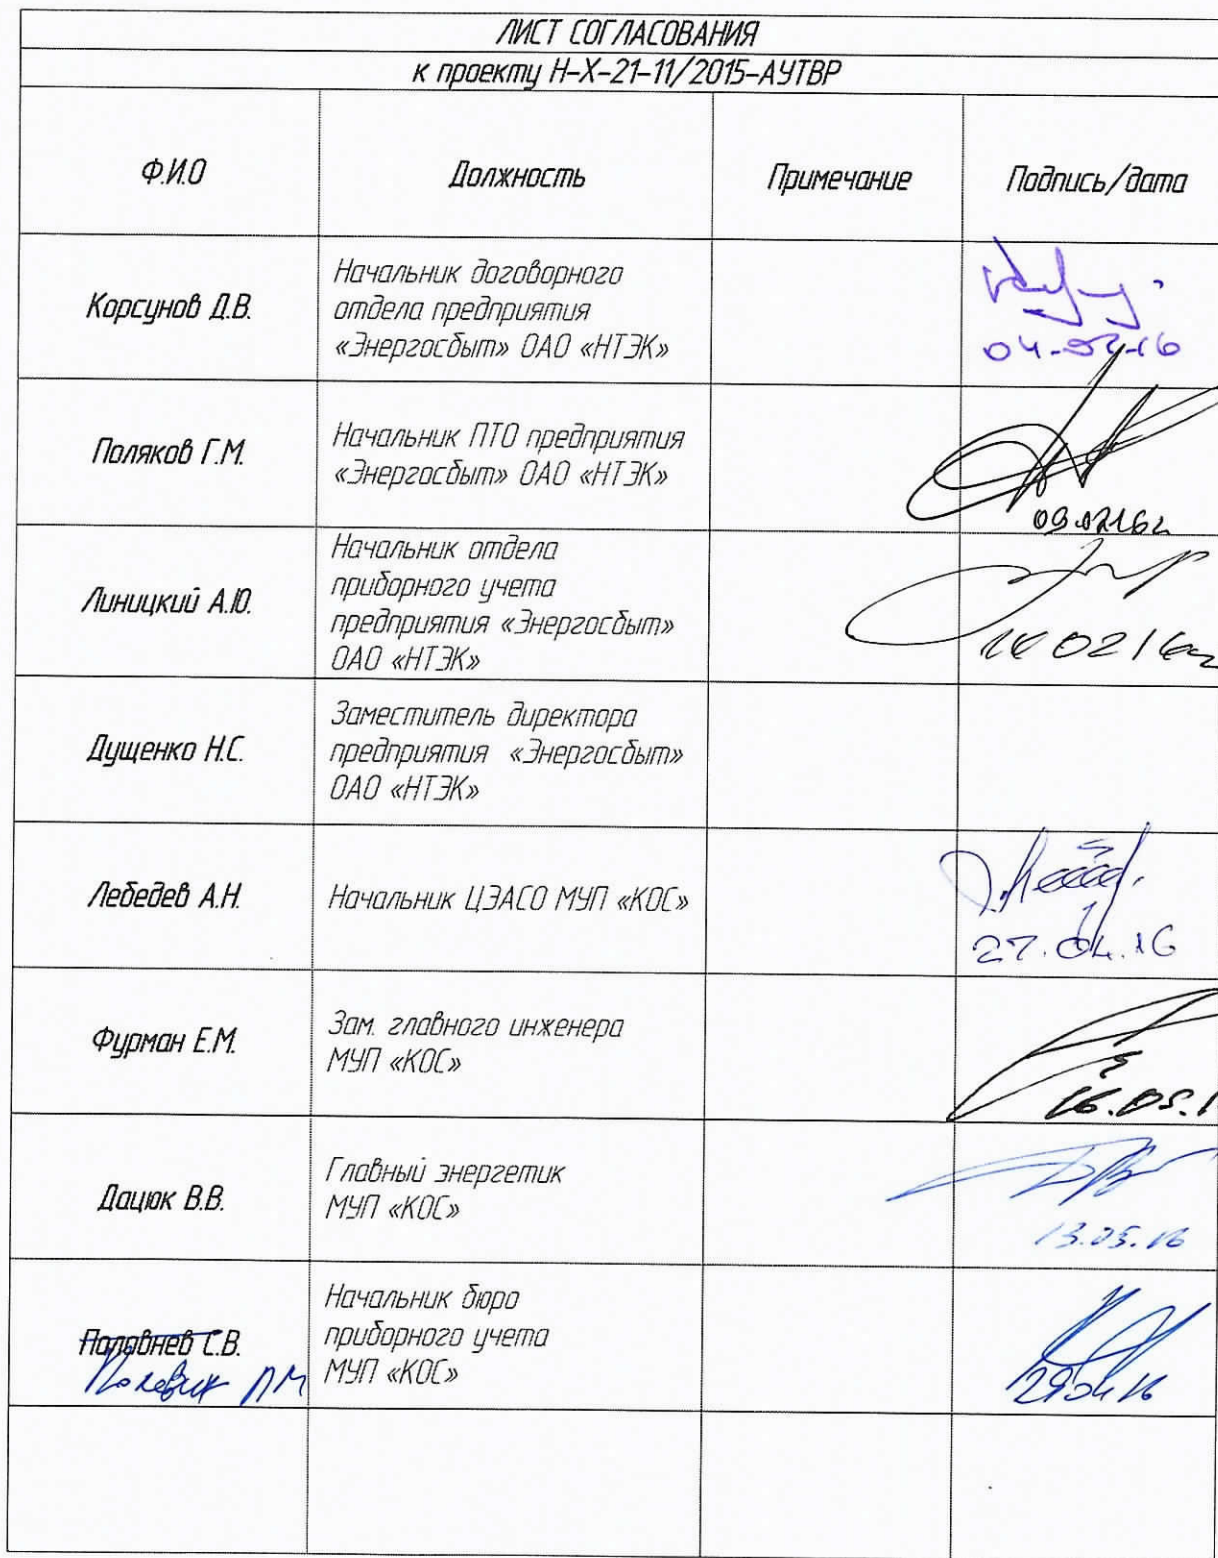 ЛИСТ СОГЛАСОВАНИЯ
к проекту Н-Х-21-11/2015-АУТВР
Ф.И.О
Должность
Примечание
Подпись/дата
Корсунов Д.В.
Начальник договорного
отдела предприятия
«Энергосбыт» ОАО «НТЭК»
Поляков Г.М.
Начальник ПТО предприятия
«Энергосбыт» ОАО «НТЭК»
09.02.16г
Линицкий А.Ю.
Начальник отдела
приборного учета
предприятия «Энергосбыт»
ОАО «НТЭК»
Дущенко Н.С.
Заместитель директора
предприятия «Энергосбыт»
ОАО «НТЭК»
Лебедев А.Н.
Начальник ЦЭАСО МУП «КОС»
27.04.16
Фурман Е.М.
Зам. главного инженера
МУП «КОС»
16.05.1
Дацюк В.В.
Главный энергетик
МУП «КОС»
13.05.16
С.В.
Начальник бюро
приборного учета
МУП «КОС»
29.04.16